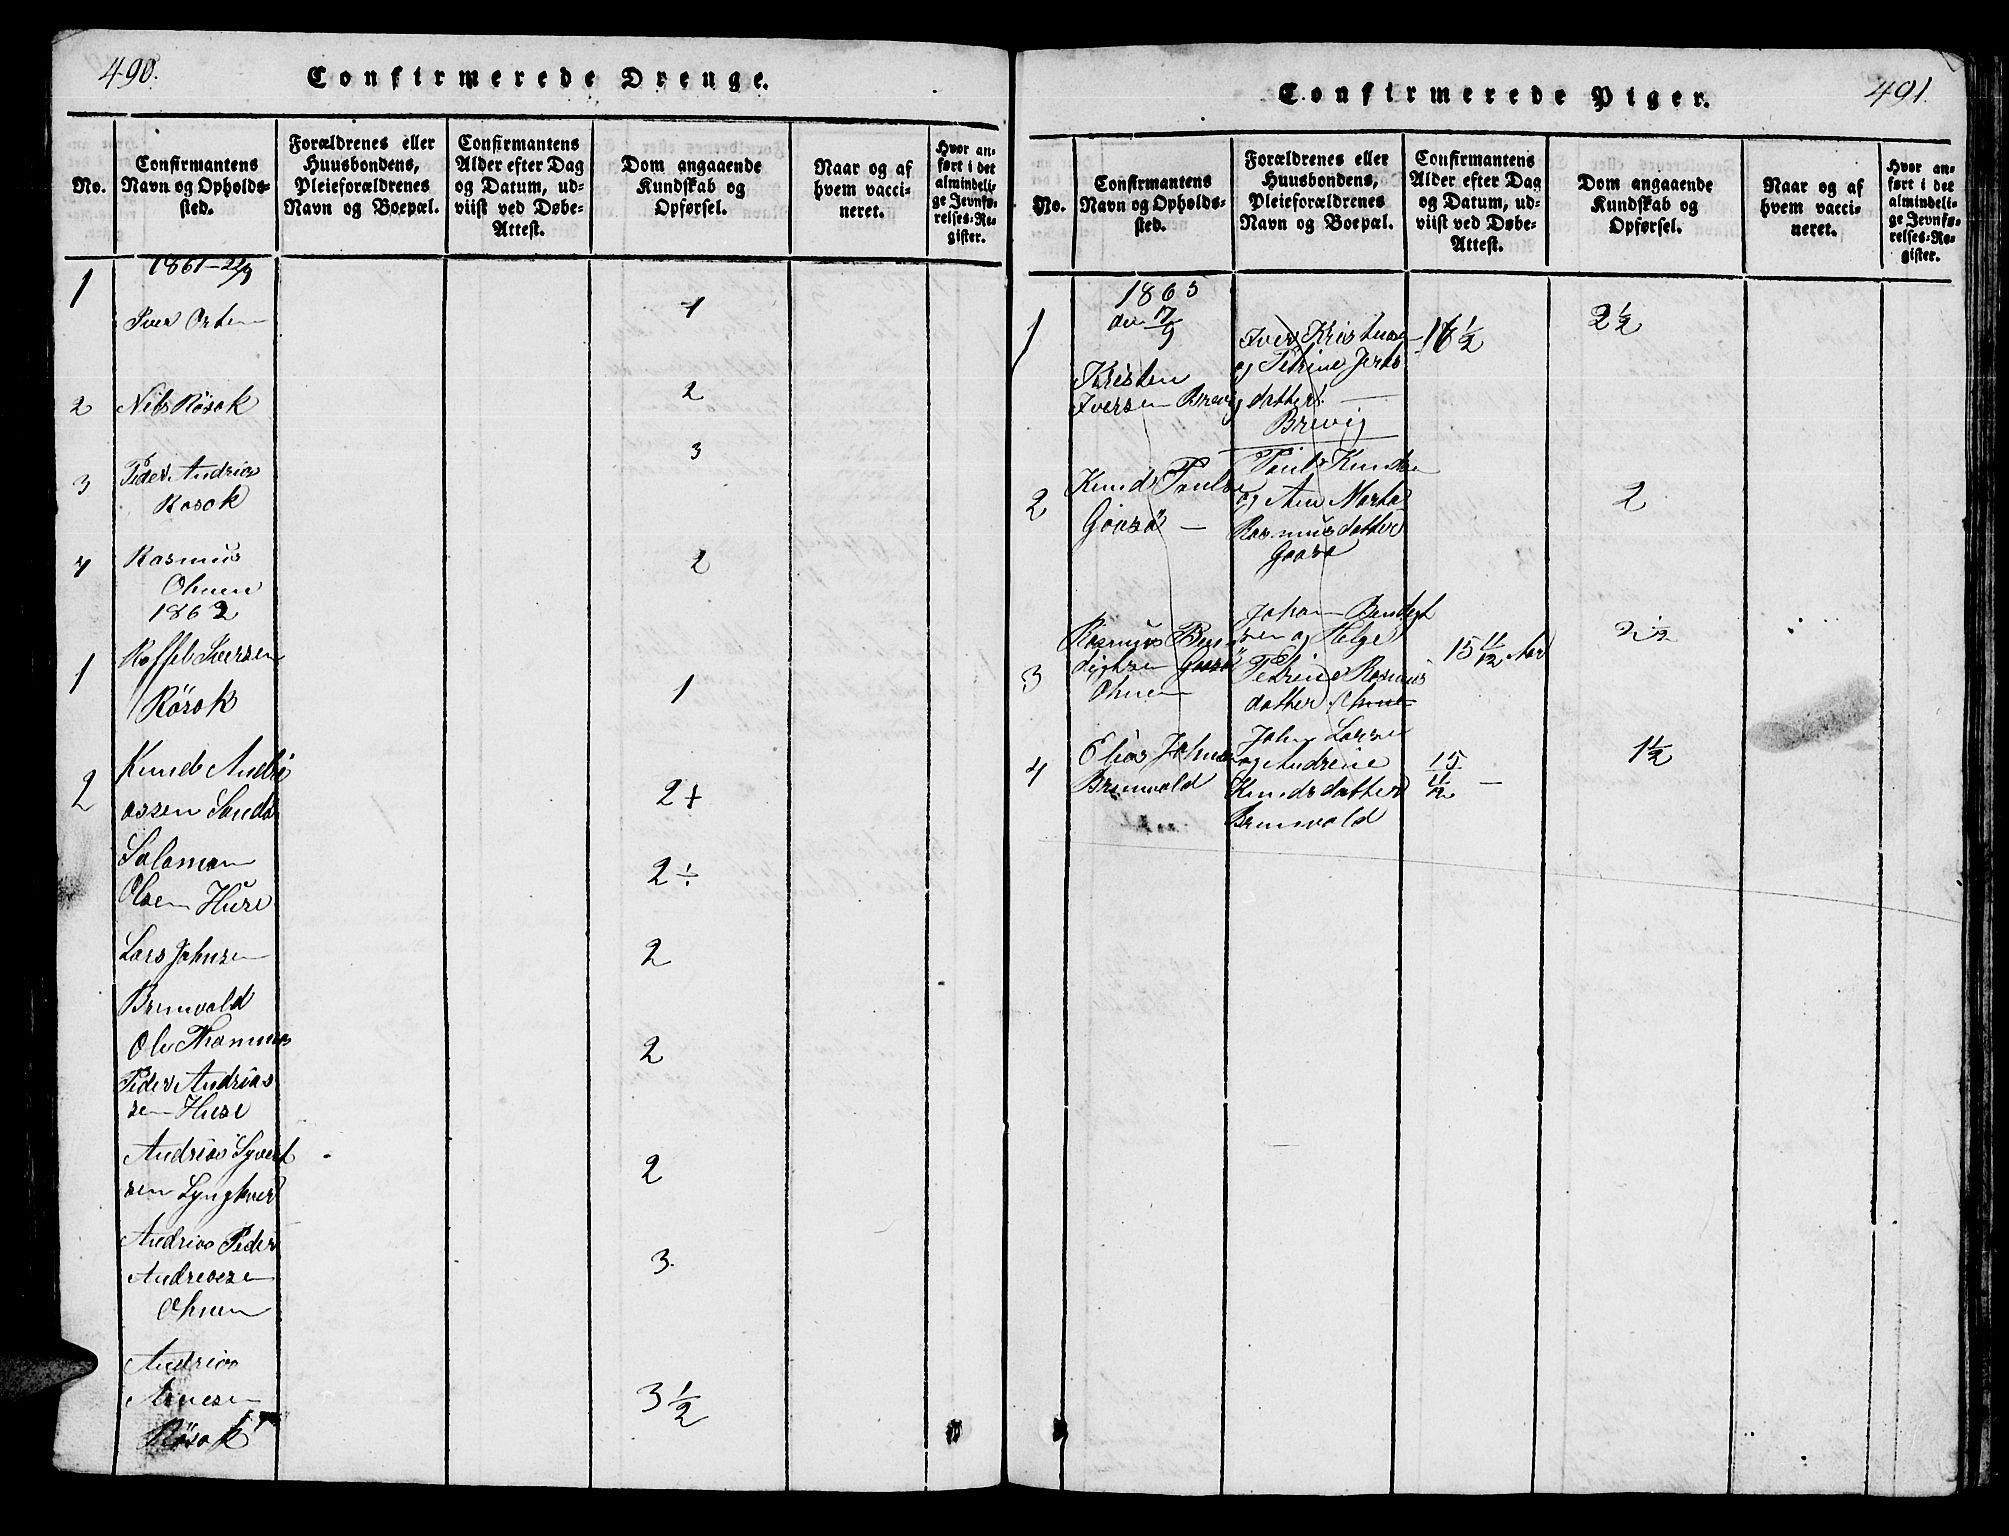 490.
Confirmerede Drenge.
No.
Confirmantens
Navn og Opholds-
sted.
Forældrenes eller
Huusbondens,
Pleieforældrenes
Navn og Boepæl.
Confirmantens
Alder efter Dag
og Datum, ud-
viist ved Døbe-
Attest.
Dom angaaende
Kundskab og
Opførsel.
Naar og af
hvem vacci-
neret.
Hvor an-
ført i det
almindeli-
ge Jevnfø-
relses-Re-
gister.
1861-22/9
1
Iver Orten
1
2 Nils Rösok
2
3 Peder Andrias
Rosok
3
4 Rasmus
Ohnen
2
1862
1
Rösok
1
2 Knud Andri
assen
2+
Salamon
Olsen Huse
2÷
Lars Johnsen
Brunvold
2
Ole
2
Peder Andrias
sen Huse
Andrias Syvert
sen
2
Andrias Peder
Andriassen
Ohnen
3.
Andrias
Arnesen
Rösok
3 1/2
491.
Confirmerede Piger.
No.
Confirmantens
Navn og Opholds-
sted.
Forældrenes eller
Huusbondens,
Pleieforældrenes
Navn og Boepæl.
Confirmantens
Alder efter Dag
og Datum, ud-
viist ved Døbe-
Attest.
Dom angaaende
Kundskab og
Opførsel.
Naar og af
hvem vacci-
neret.
Hvor an-
ført i det
almindeli-
ge Jevnfø-
relses-Re-
gister.
1863
den 17/9
1
Kristen
Iversen Brevig
Iver Kristensen
og Petrine
datter
Brevig
16 1/2
2 1/2
2 Knud Poulsen
Gaasö
Poul Knudsen
og Ane Marta
Rasmusdatter
Gaasö
2
3 Rasmus Ben
digtsen Gaasö
Ohnen
Johan Bendigt
sen og Helge
Petrine Rasmus
datter Ohnen
15 11/12 Aar
2 1/2
4 Elias Johnsen
Brunvold
John Larsen
og Andrine
Knudsdatter
Brunvold
15
11/12
1 1/2